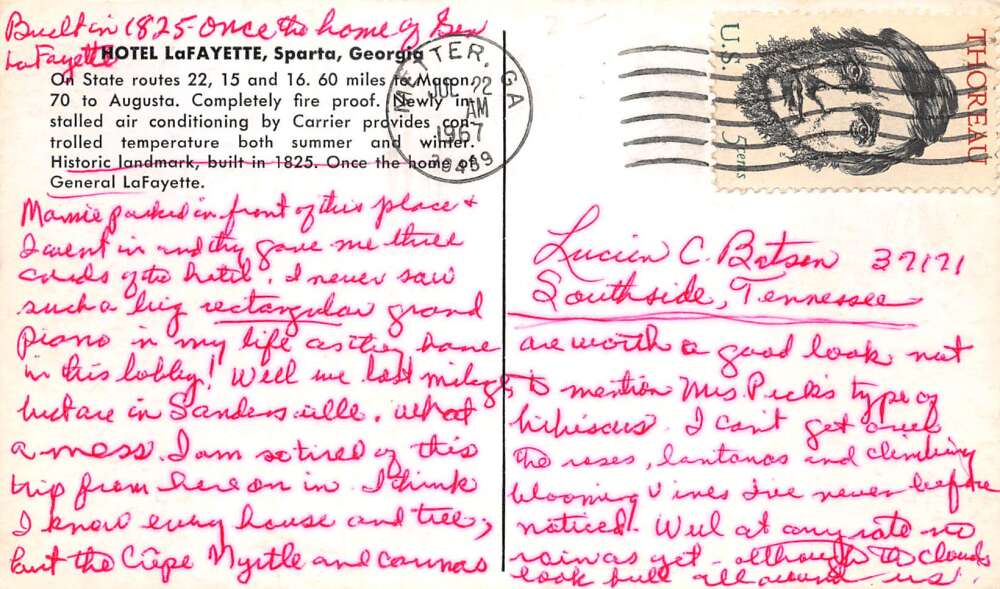 Built in 1825 - Once the home of Gen
LaFayette
HOTEL LaFAYETTE, Sparta, Georgia
On State routes 22, 15 and 16. 60 miles to Macon,
70 to Augusta. Completely fire proof. Newly in-
stalled air conditioning by Carrier provides con-
trolled temperature both summer and winter.
Historic landmark, built in 1825. Once the home of
General LaFayette.
METTER, GA
JUL 22
AM
1967
30439
U.S. 5 cents
THOREAU
Mamie parked in front of this place &
I went in and they gave me three
cards of the hotel. I never saw
such a big rectangular grand
piano in my life as they have
in this lobby! Well we lost mileage
but are in Sandersville. What
a mess. I am so tired of this
trip from here on in. I think
I know every house and tree;
but the Crêpe Myrtle and cannas
Lucien C. Batson 37171
Southside, Tennessee
are worth a good look not
to mention Mrs Peck's type of
hibiscus. I can't get over
the roses, lantanas and climbing
blooming vines I've never before
noticed. Well at any rate no
rain as yet - although the clouds
look full all around us.